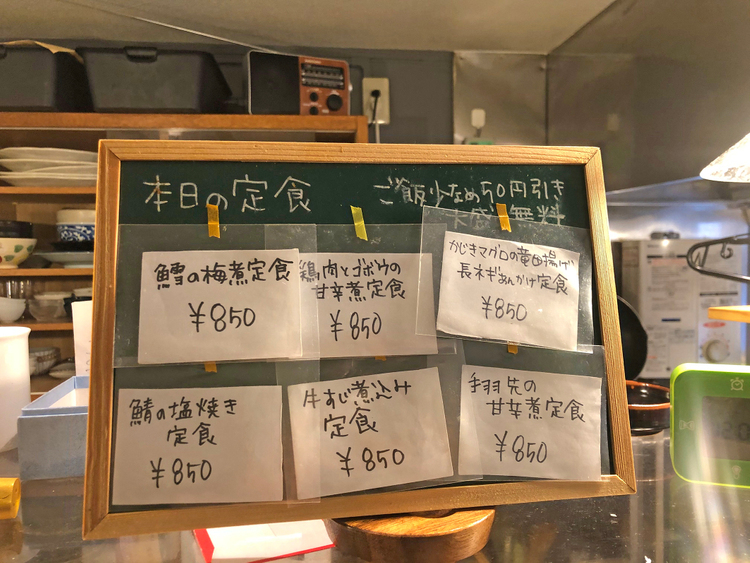 本日の定食
ご飯少なめ50円引き
大盛り無料
鱈の梅煮定食
¥850
鶏肉とゴボウの
甘辛煮定食
¥850
かじきマグロの竜田揚げ
長ネギあんかけ定食
¥850
鯖の塩焼き
定食
¥850
牛すじ煮込み
定食
¥850
手羽先の
甘辛煮定食
¥850